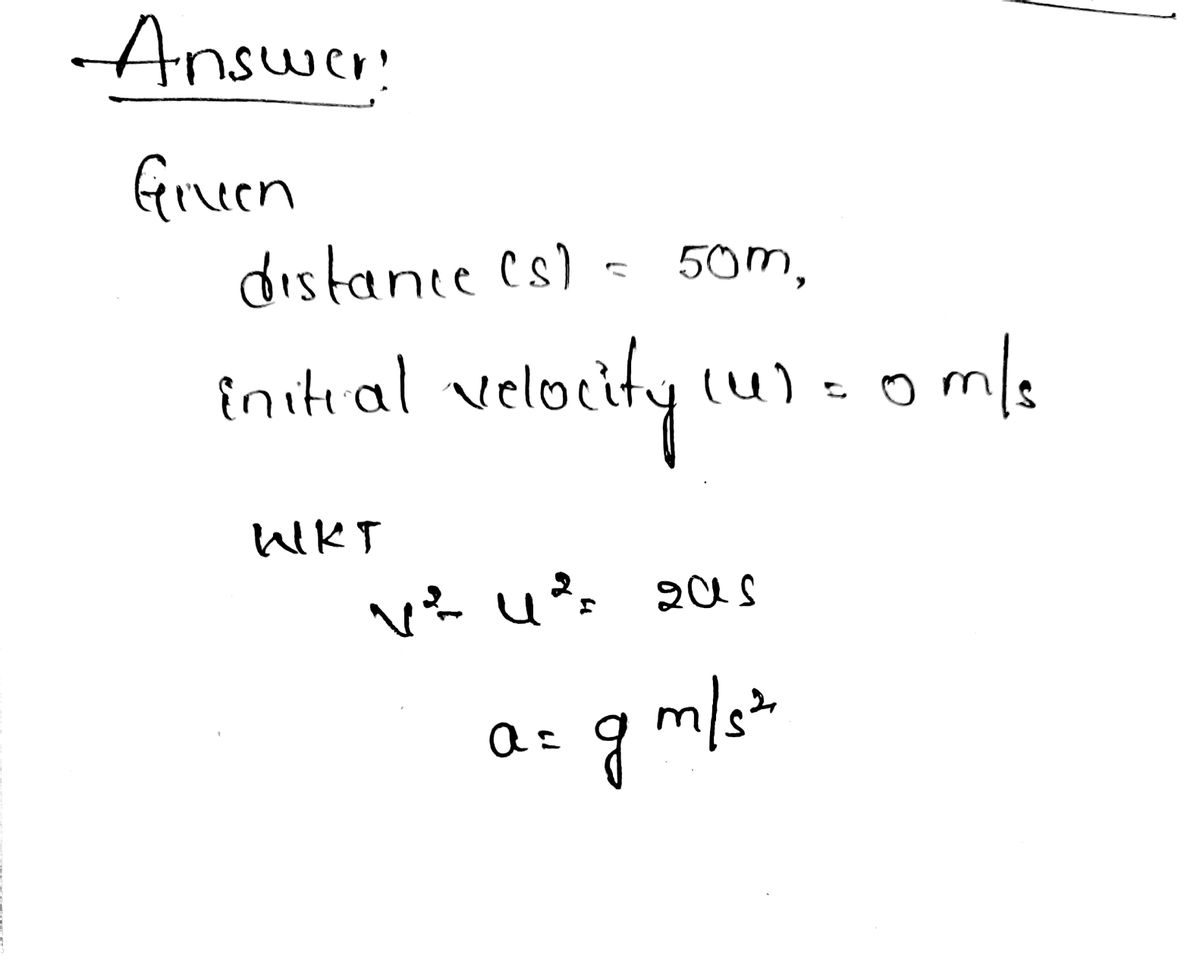 Answer:
Given
distance (s) = 50m,
initial velocity (u) = 0 m/s
WKT
v² - u² = 2as
a = g m/s²